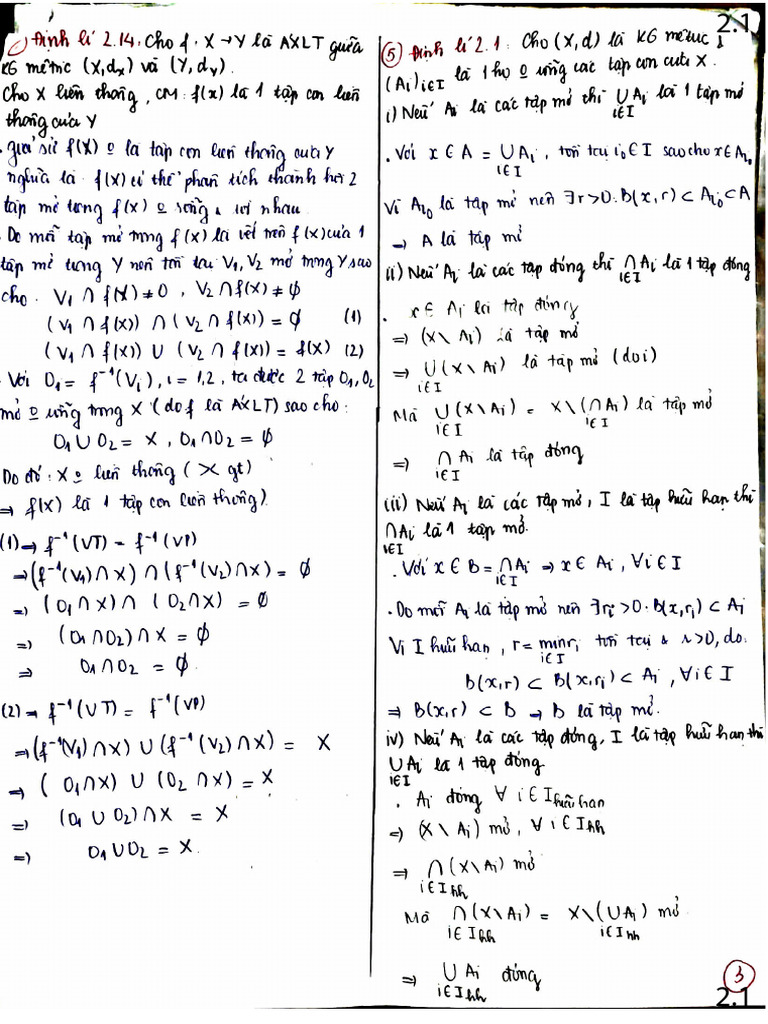 2.1
Định lí 2.14. Cho f: X → Y là AXLT giữa
KG mêtric (X, dx) và (Y, dy).
Cho X liên thông, CM: f(x) là 1 tập con liên
thông của Y
. giả sử f(X) o là tập con liên thông của Y
nghĩa là f(X) có thể phân tích thành hội 2
tập mở trong f(x) o rỗng & rời nhau.
. Do mỗi tập mở trong f(x) là vết trên f(x) của 1
tập mở trong Y nên tồn tại V₁, V₂ mở trong Y sao
cho. V₁ ∩ f(X) ≠ 0, V₂ ∩ f(x) ≠ ∅
(V₁ ∩ f(x)) ∩ (V₂ ∩ f(x)) = ∅ (1)
(V₁ ∩ f(x)) ∪ (V₂ ∩ f(x)) = f(X) (2)
. Với O₁ = f⁻¹(Vᵢ), i = 1,2, ta được 2 tập O₁, O₂
mở o rỗng trong X (do f là AXLT) sao cho:
O₁ ∪ O₂ = X, O₁ ∩ O₂ = ∅
Do đó: X o liên thông (X gt)
⇒ f(X) là 1 tập con liên thông).
(1) → f⁻¹(VT) = f⁻¹(VP)
→ (f⁻¹(V₁) ∩ X) ∩ (f⁻¹(V₂) ∩ X) = ∅
⇒ (O₁ ∩ X) ∩ (O₂ ∩ X) = ∅
⇒ (O₁ ∩ O₂) ∩ X = ∅
⇒ O₁ ∩ O₂ = ∅.
(2) → f⁻¹(VT) = f⁻¹(VP)
→ (f⁻¹(V₁) ∩ X) ∪ (f⁻¹(V₂) ∩ X) = X
⇒ (O₁ ∩ X) ∪ (O₂ ∩ X) = X
⇒ (O₁ ∪ O₂) ∩ X = X
⇒ O₁ ∪ O₂ = X.
⑤ Định lí 2.1: Cho (X, d) là KG mêtric &
(Aᵢ)i∈I là 1 họ o rỗng các tập con của X.
i) Nếu Aᵢ là các tập mở thì ∪Aᵢ là 1 tập mở
i∈I
. Với x ∈ A = ∪Aᵢ, tồn tại i₀ ∈ I sao cho x ∈ Ai₀
i∈I
Vì Ai₀ là tập mở nên ∃r > 0: B(x, r) ⊂ Ai₀ ⊂ A
→ A là tập mở
ii) Nếu Aᵢ là các tập đóng thì ∩Aᵢ là 1 tập đóng
i∈I
. x ∈ Aᵢ là tập đóng
⇒ (X \ Aᵢ) là tập mở
⇒ ∪(X \ Aᵢ) là tập mở (do i)
i∈I
Mà ∪(X \ Aᵢ) = X \ (∩Aᵢ) là tập mở
i∈I i∈I
⇒ ∩ Aᵢ là tập đóng
i∈I
iii) Nếu Aᵢ là các tập mở, I là tập hữu hạn thì
∩Aᵢ là 1 tập mở.
i∈I
. Với x ∈ B = ∩Aᵢ ⇒ x ∈ Aᵢ, ∀i ∈ I
i∈I
. Do mỗi Aᵢ là tập mở nên ∃rᵢ > 0: B(x, rᵢ) ⊂ Aᵢ
Vì I hữu hạn, r = min rᵢ tồn tại & r > 0, do:
i∈I
B(x, r) ⊂ B(x, rᵢ) ⊂ Aᵢ, ∀i ∈ I
⇒ B(x, r) ⊂ B → B là tập mở.
iv) Nếu Aᵢ là các tập đóng, I là tập hữu hạn thì
∪Aᵢ là 1 tập đóng
i∈I
. Aᵢ đóng ∀ i ∈ I hữu hạn
⇒ (X \ Aᵢ) mở, ∀ i ∈ I hh
⇒ ∩(X \ Aᵢ) mở
i∈I hh
Mà ∩(X \ Aᵢ) = X \ (∪Aᵢ) mở
i∈I hh i∈I hh
⇒ ∪ Aᵢ đóng
i∈I hh
3
2.1